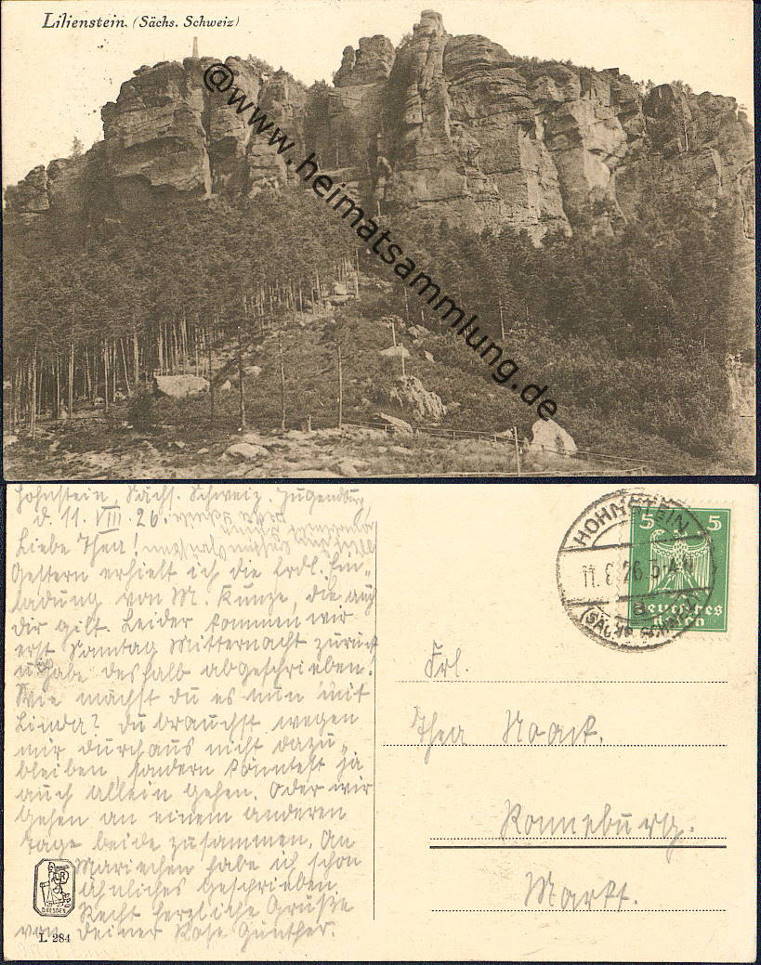 Lilienstein. (Sächs. Schweiz)
@www.heimatsammlung.de
Hohnstein, Sächs. Schweiz. Jugendburg
d. 11. VIII. 26.
Liebe Thea!
Gestern erhielt ich die frdl. Ein-
ladung von M. Kunze, die auch
dir gilt. Leider kommen wir
erst Sonntag Mitternacht zurück
u. habe deshalb abgeschrieben.
Wie machst du es nun mit
Linda? Du brauchst wegen
mir durchaus nicht dazu-
bleiben, sondern könntest ja
auch allein gehen. Oder wir
gehen an einem anderen
Tage beide zusammen. An
Mariechen habe ich schon
ähnliches geschrieben.
Recht herzliche Grüße
von Deiner Rose Günther.
DRESDEN
L 284
HOHNSTEIN
11.8.26
(SÄCHS. SCHWEIZ)
5 5
Deutsches
Reich
Frl.
Thea Noack.
Ronneburg.
Markt.